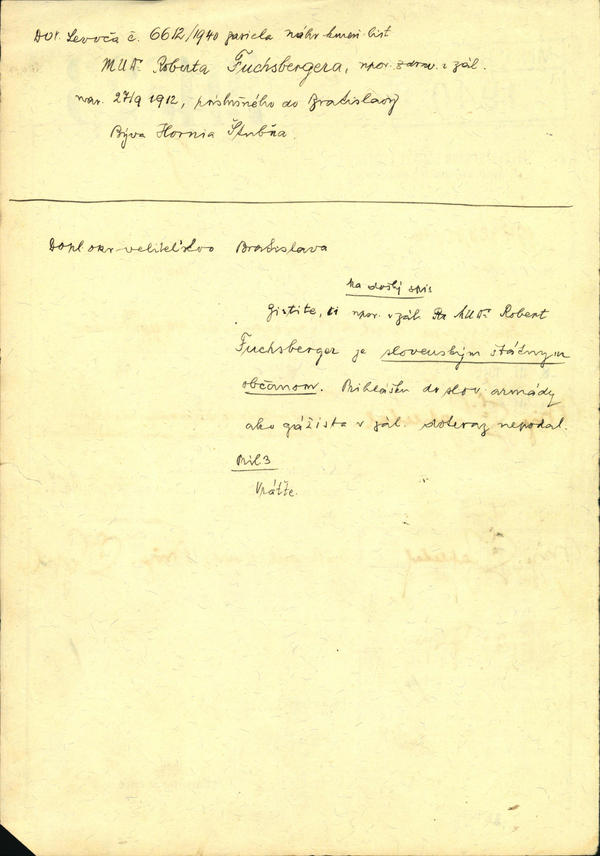 DOV. Levoča č. 6612/1940 zasiela náhr. kmeň. list
MUDr Roberta Fuchsbergera, npor. zdrav. v zál.
nar. 27/9 1912, príslušného do Bratislavy
Býva Hornia Štubňa.
Dopl. okr. veliteľstvo Bratislava
Na došlý spis
Zistite, či npor. v zál. MUDr Robert
Fuchsberger je slovenským štátnym
občanom. Prihlášku do slov. armády
ako gážista v zál. doteraz nepodal.
Pril 3
Vráťte.